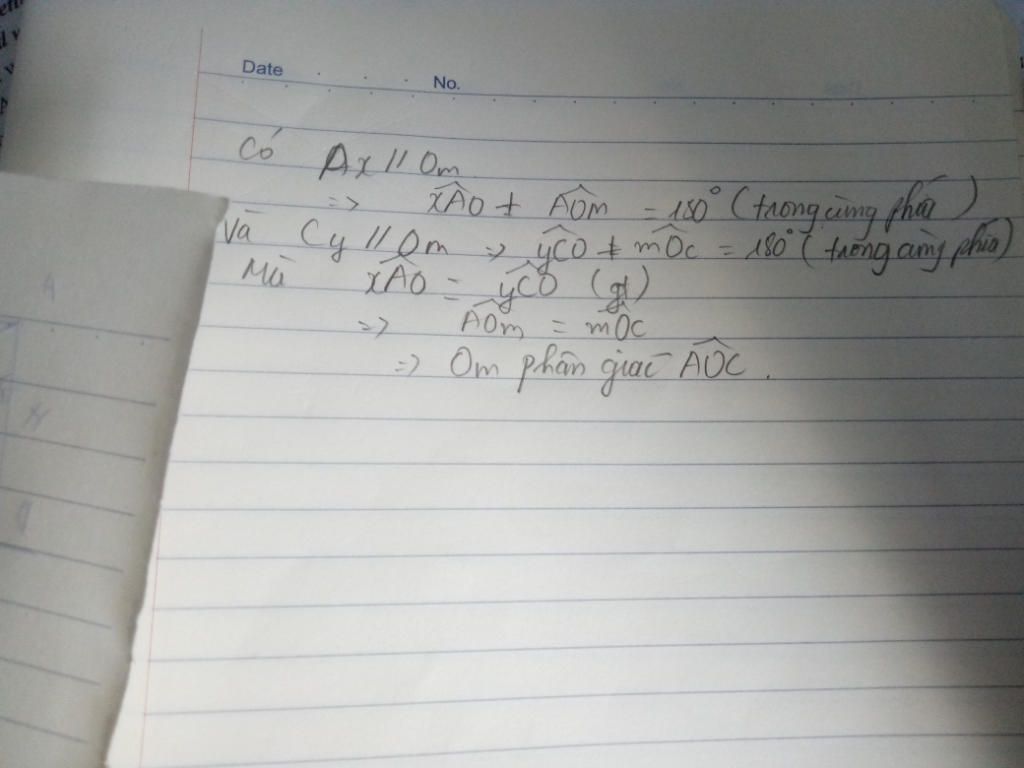 Date No.
Có Ax // Om
=> xÂO + AÔm = 180° (trong cùng phía)
Và Cy // Om => yĈO + mÔc = 180° (trong cùng phía)
Mà xÂO = yĈO (gt)
=> AÔm = mÔc
=> Om phân giác AÔC.